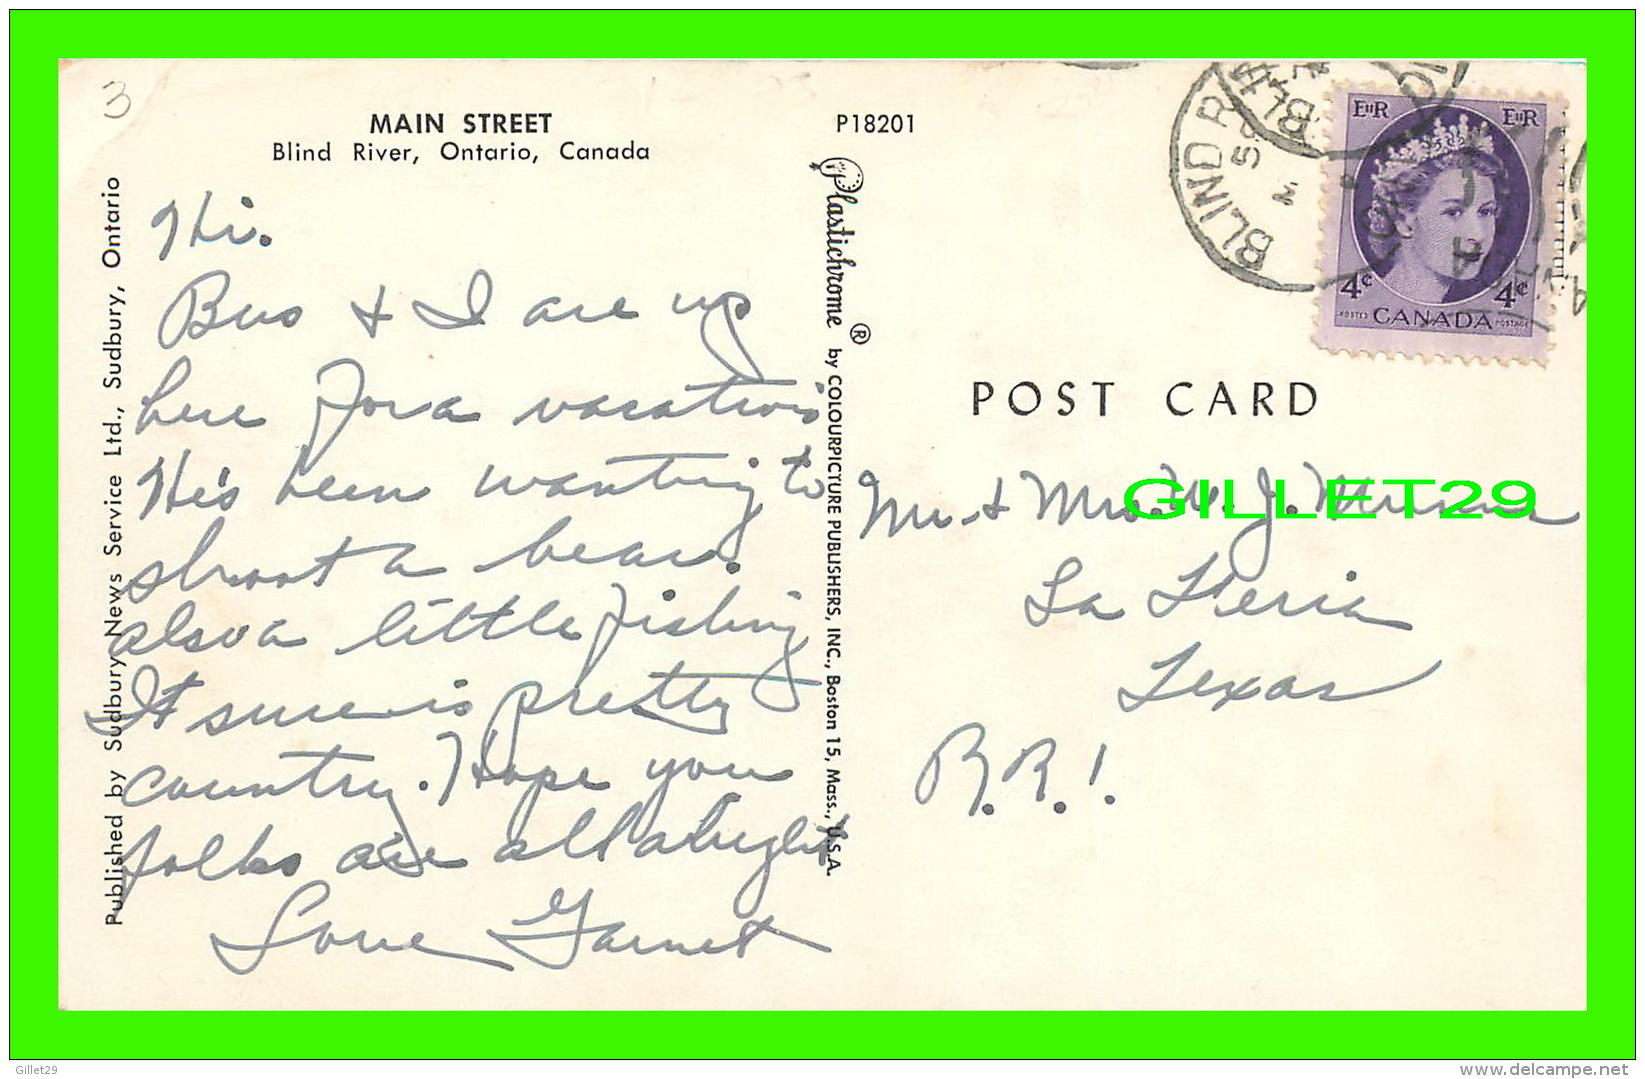 3
MAIN STREET
Blind River, Ontario, Canada
P18201
Published by Sudbury News Service Ltd., Sudbury, Ontario
Hi.
Bus & I are up
here for a vacation
He's been wanting to
shoot a bear.
also a little fishing
It sure is pretty
country. Hope you
folks are all alright
Love Garnet
Plastichrome ® by COLOURPICTURE PUBLISHERS, INC., Boston 15, Mass., U.S.A.
BLIND R
EIIR EIIR
4c 4c
POSTES CANADA POSTAGE
POST CARD
Mr. & Mrs. W. J.
GILLET29
La Feria
Texas
R.R.1.
Gillet29
www.delcampe.net